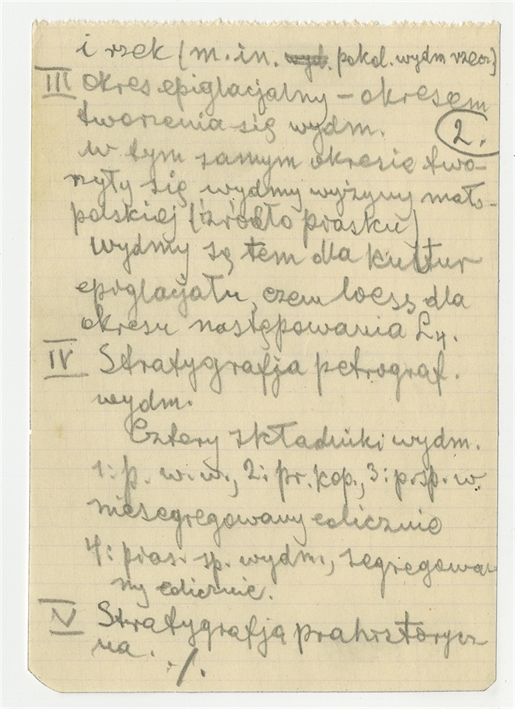 i rzek (m.in. wyd. pokol. wydm rzecz)
III Okres epiglacjalny – okresem
tworzenia się wydm.
2.
w tym samym okresie two-
rzyły się wydmy wyżyny mało-
polskiej (źródło piasku)
wydmy są tem dla kultur
epiglacjału, czem loess dla
okresu następowania L4.
IV Stratygrafja petrograf.
wydm.
Cztery składniki wydm.
1: p. w. w., 2: pr. kop., 3: p. sp. w.
niesegregowany eolicznie
4: pias. sp. wydm, segregowa
ny eolicznie.
V Stratygrafja prahistorycz
na. ./.